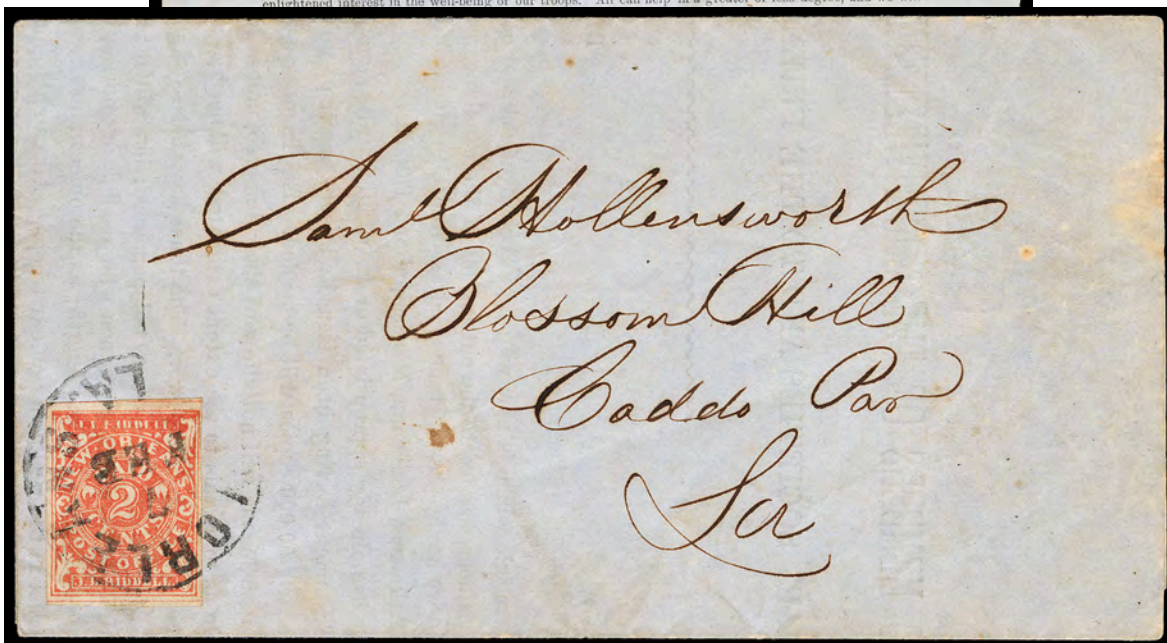 enlightened interest in the well-being of our troops. All can help in a greater or less degree, and we
Saml Hollensworth
Blossom Hill
Caddo Par
La
LA.
J.L. RIDDELL
NEW ORLEANS
FEB
2
CENTS
POST OFFICE
J.L. RIDDELL